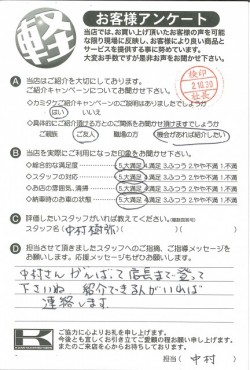 軽
お客様アンケート
当店では、お買い上げ頂いたお客様の声を可能
な限り現場に反映し、お客様により良い商品と
サービスを提供する事に努めています。
大変お手数ですが是非お声をお聞かせ下さい。
検印
2.10.30
A 当店はご紹介を大切にしております。
ご紹介キャンペーンについてお聞かせ下さい。
◇カミタケご紹介キャンペーンのご説明はありましたでしょうか
はい いいえ
◇具体的にご紹介頂ける方とのご関係をお聞かせ頂けますでしょうか
ご親族 ご友人 職場の方 機会があれば紹介したい
B 当店を実際にご利用になった印象をお聞かせ下さい。
◇総合的な満足度 5.大満足 4.満足 3.ふつう 2.やや不満 1.不満
◇スタッフの対応 5.大満足 4.満足 3.ふつう 2.やや不満 1.不満
◇お店の雰囲気、清掃 5.大満足 4.満足 3.ふつう 2.やや不満 1.不満
◇納車時のお車の状態 5.大満足 4.満足 3.ふつう 2.やや不満 1.不満
C 評価したいスタッフがいれば教えてください。
スタッフ名( 中村 )
D 担当させて頂きましたスタッフへのご指摘、ご指導メッセージを
お願いします。応援メッセージもぜひお願いします。
中村さん がんばって店長まで登って
下さいね 紹介できる人がいれば
連絡します
K
ご協力に心よりお礼を申し上げます。
今後とも宜しくお引き立てご愛顧の程お願い申し上げます。
またのご来店を心からお待ちしております。
担当( 中村 )